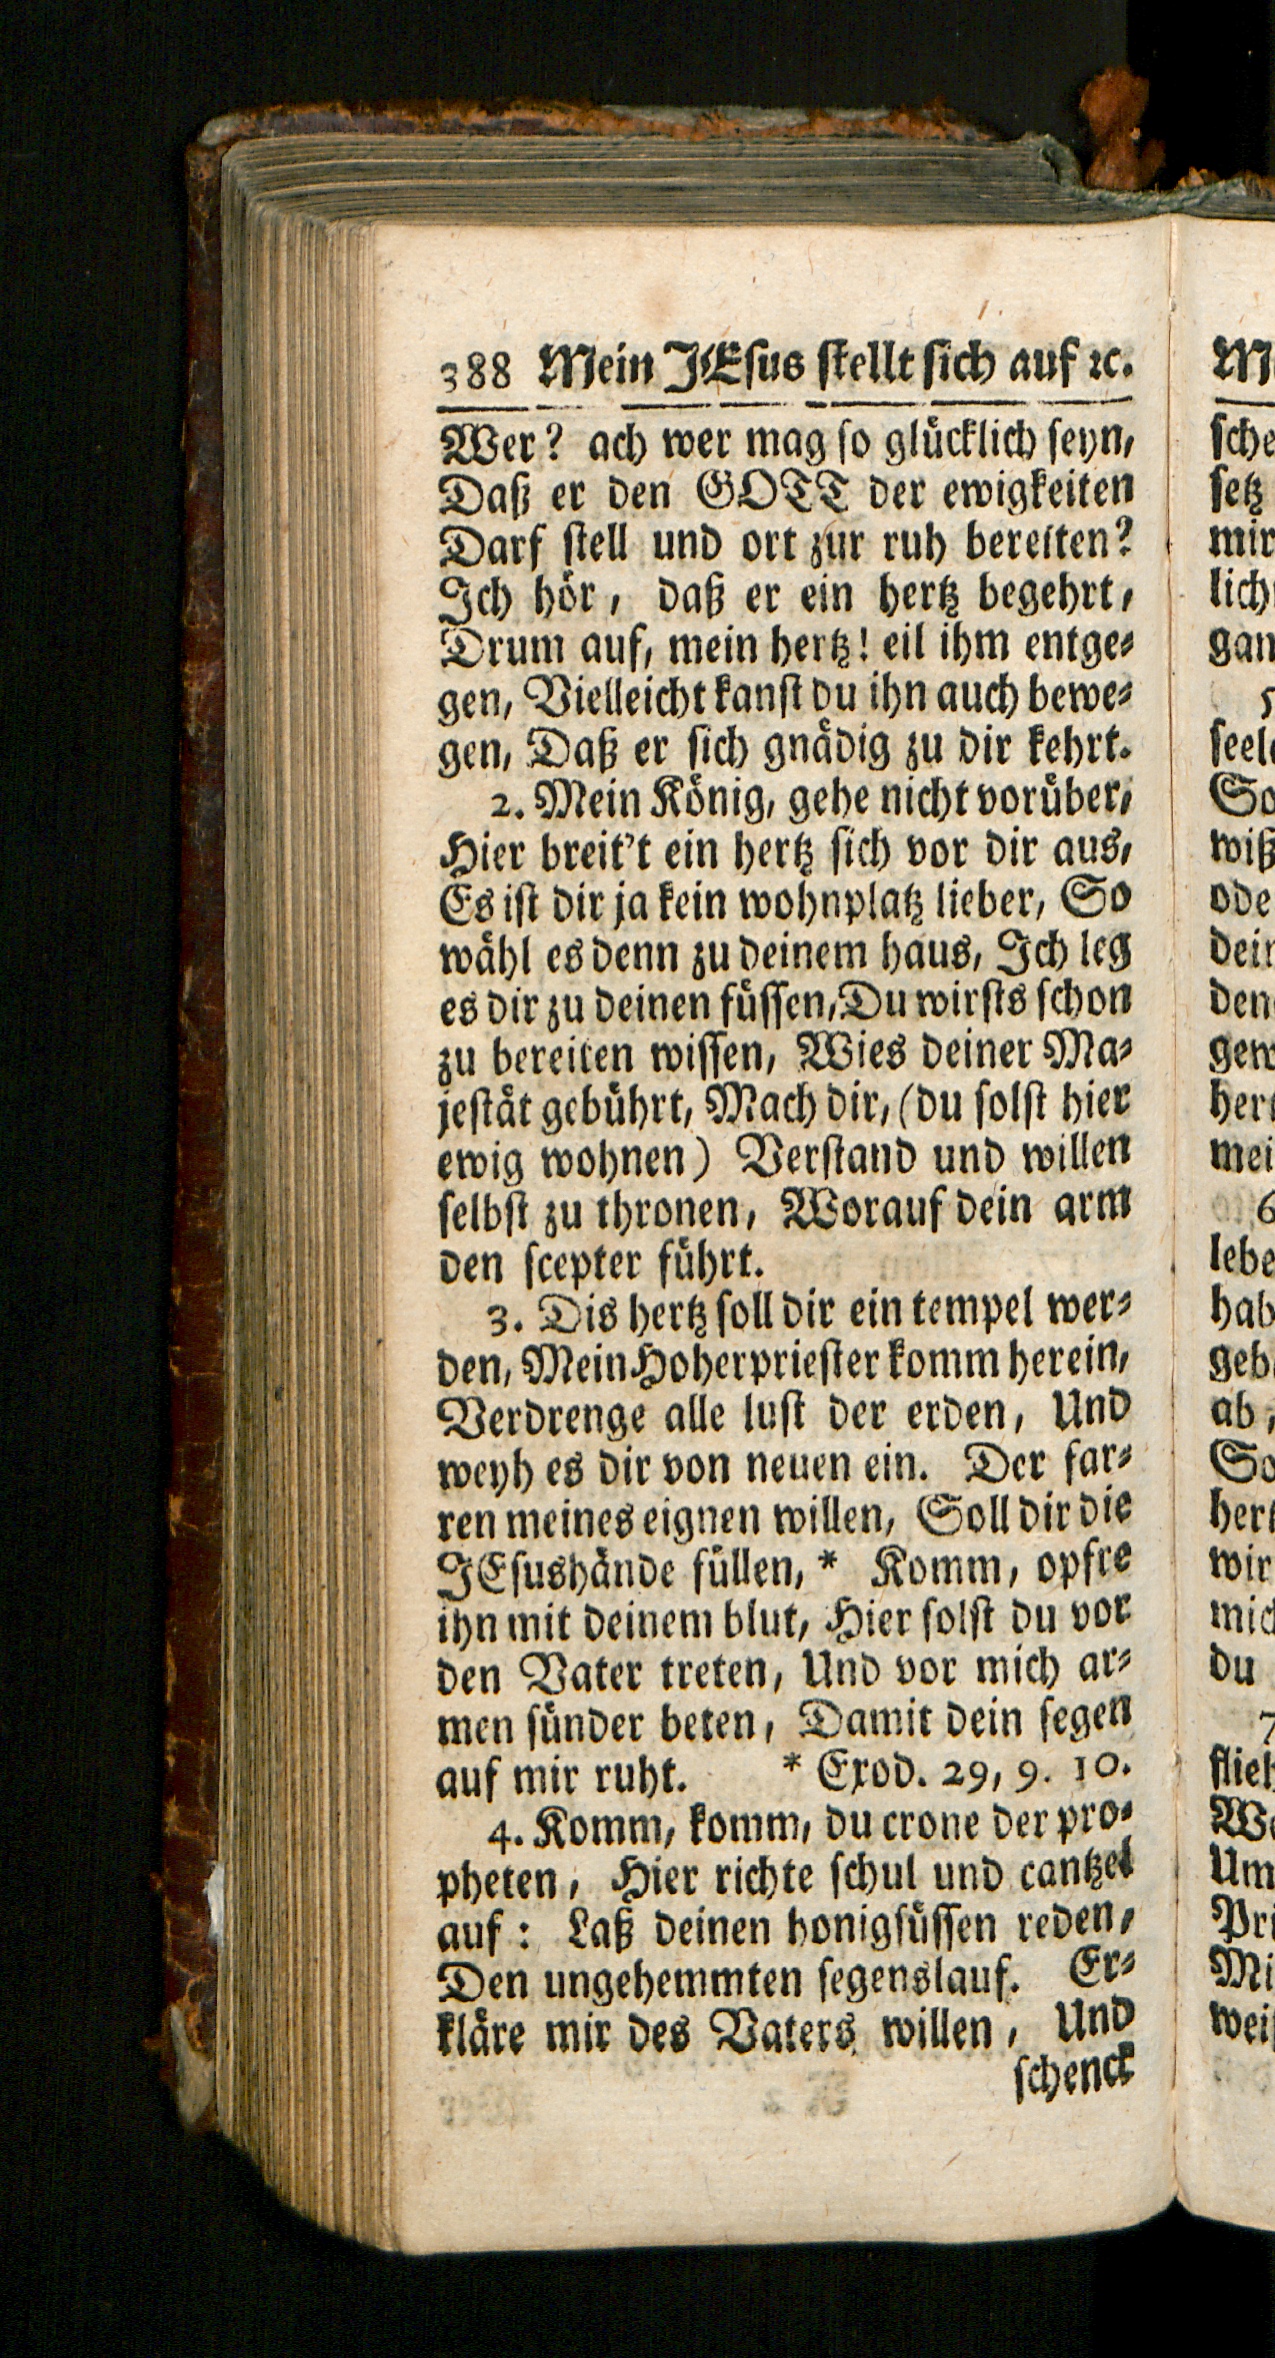 388 Mein JEsus stellt sich auf ꝛc.
Wer? ach wer mag so glücklich seyn,
Daß er den GOTT der ewigkeiten
Darf stell und ort zur ruh bereiten?
Ich hör, daß er ein hertz begehrt,
Drum auf, mein hertz! eil ihm entge-
gen, Vielleicht kanst du ihn auch bewe-
gen, Daß er sich gnädig zu dir kehrt.
2. Mein König, gehe nicht vorüber,
Hier breit't ein hertz sich vor dir aus,
Es ist dir ja kein wohnplatz lieber, So
wähl es denn zu deinem haus, Ich leg
es dir zu deinen füssen, Du wirsts schon
zu bereiten wissen, Wies deiner Ma-
jestät gebührt, Mach dir, (du solst hier
ewig wohnen) Verstand und willen
selbst zu thronen, Worauf dein arm
den scepter führt.
3. Dis hertz soll dir ein tempel wer-
den, Mein Hoherpriester komm herein,
Verdrenge alle lust der erden, Und
weyh es dir von neuen ein. Der far-
ren meines eignen willen, Soll dir die
JEsushände füllen, * Komm, opfre
ihn mit deinem blut, Hier solst du vor
den Vater treten, Und vor mich ar-
men sünder beten, Damit dein segen
auf mir ruht. * Exod. 29, 9. 10.
4. Komm, komm, du crone der pro-
pheten, Hier richte schul und cantzel
auf: Laß deinen honigsüssen reden,
Den ungehemmten segenslauf. Er-
kläre mir des Vaters willen, Und
schenck